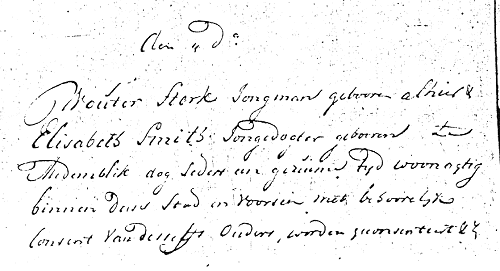 den " do
Wouter Sterk Jongman gebooren alhier &
Elisabeth Smith Jongedogter gebooren te
Medemblik dog sedert een geruime tyd woonagtig
binnen dese Stad en voorsien met behoorlijk
Consent van desselfs Ouders, worden geconsenteert &&